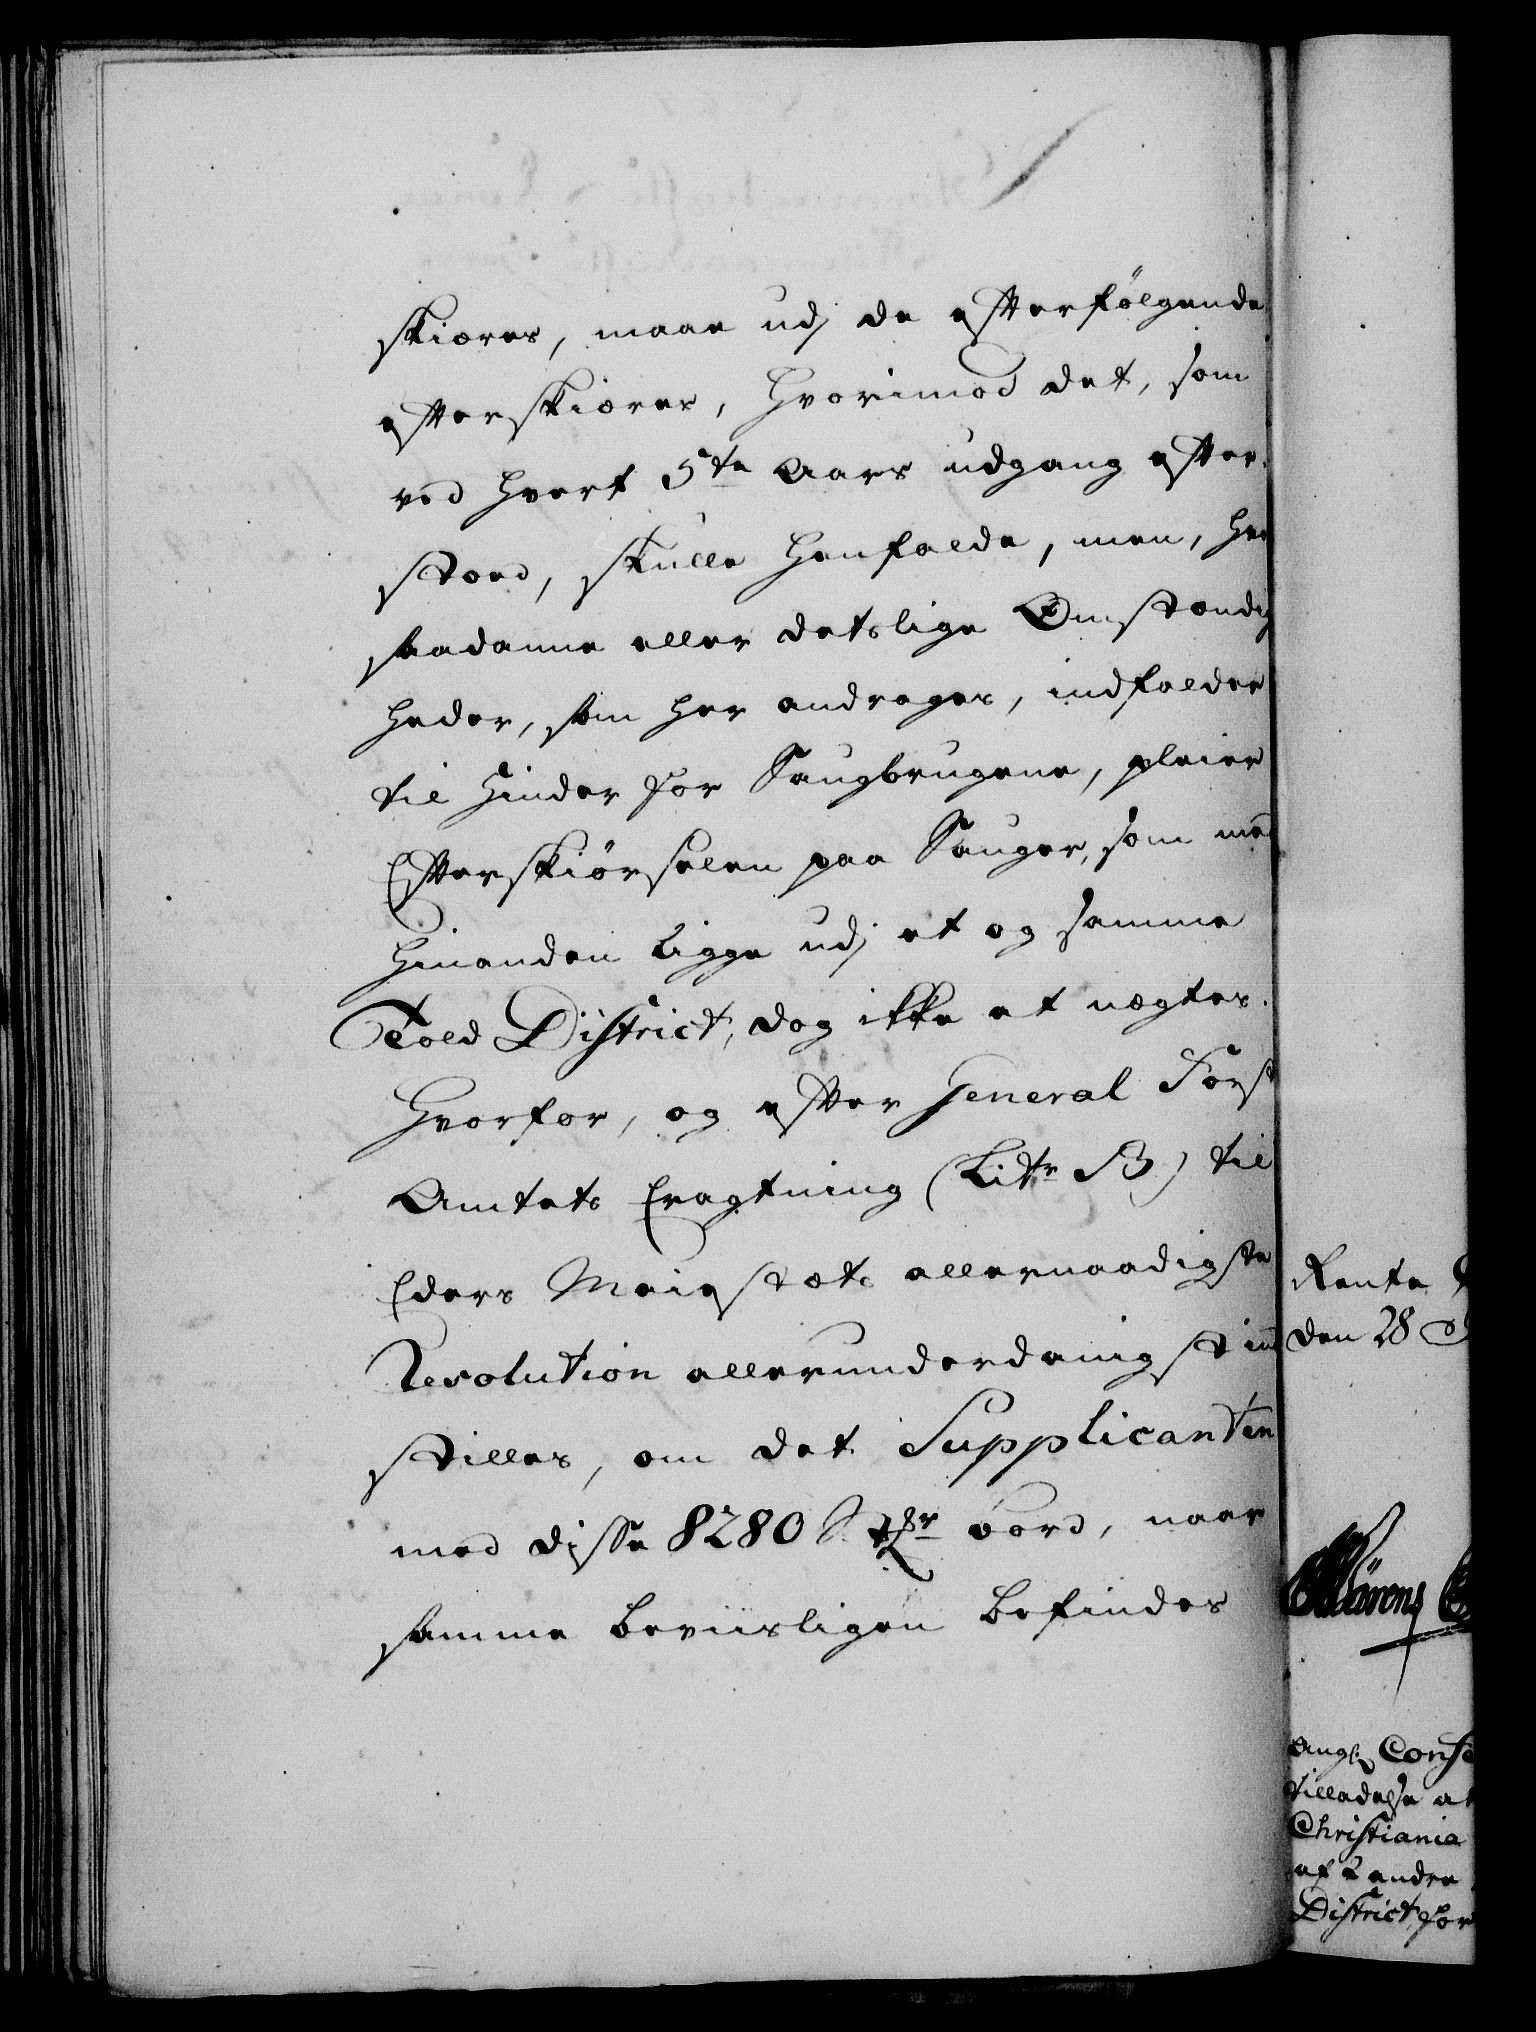 skiæres, maae udj de efterfølgende
efterskiæres, hvorimod det, som
ved hvert 5te Aars udgang efter-
stoed, skulle henfalde, men, hvor
saadanne eller deslige Omstændig
heder, som her andrages, indfalder
til Hinder for Saugbrugene, pleier
Efterskiørselen paa Sauger, som med
hinanden ligge udj et og samme
Told District, dog ikke at nægtes.
Hvorfor, og efter General Forst
Amtets Eragtning (Litr B) til
Eders Maiestæts allernaadigste
Resolution allerunderdanigst ind
stilles, om det Supplicanten
med disse 8280 bord, naar
samme beviisligen befindes
Rente
den 28
Christiania
af 2 andre
District, for